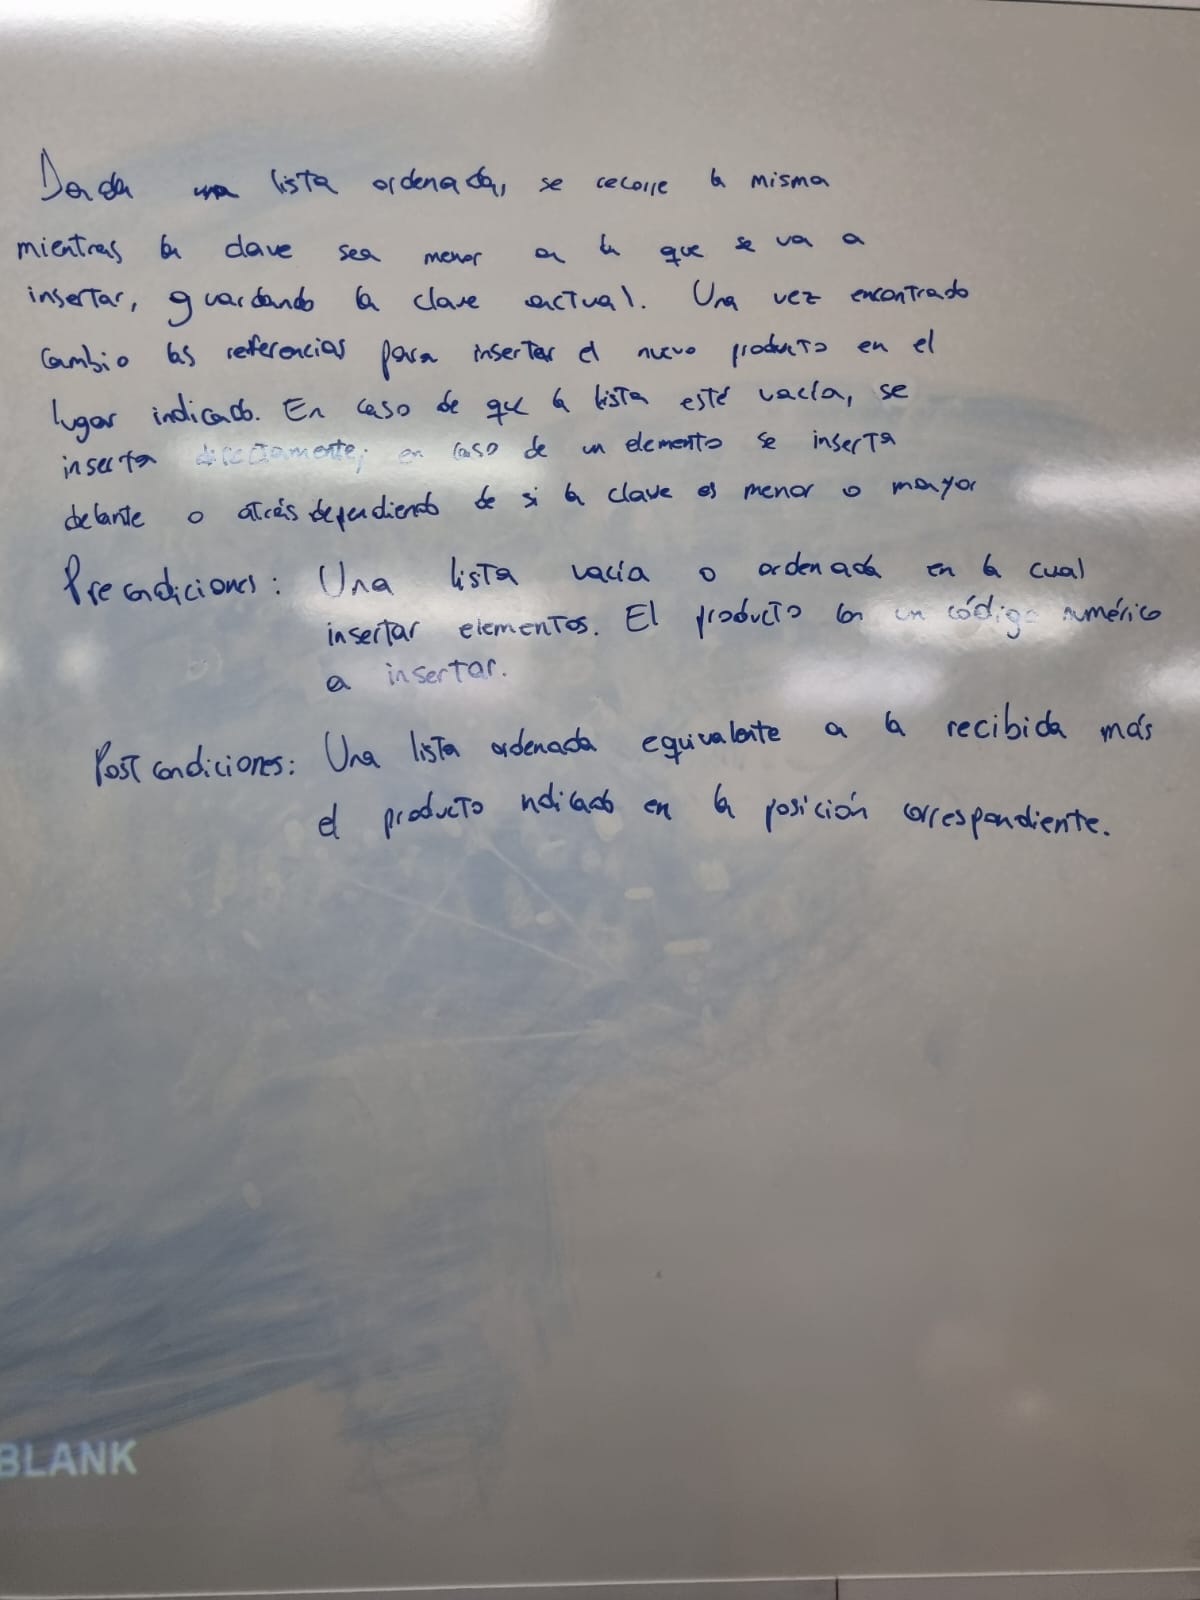 Dada una lista ordenada, se recorre la misma
mientras la clave sea menor a la que se va a
insertar, guardando la clave actual. Una vez encontrado
cambio las referencias para insertar el nuevo producto en el
lugar indicado. En caso de que la lista esté vacía, se
inserta directamente; en caso de un elemento se inserta
delante o atrás dependiendo de si la clave es menor o mayor
Precondiciones: Una lista vacía o ordenada en la cual
insertar elementos. El producto con un código numérico
a insertar.
Postcondiciones: Una lista ordenada equivalente a la recibida más
el producto ndicado en la posición correspondiente.
BLANK